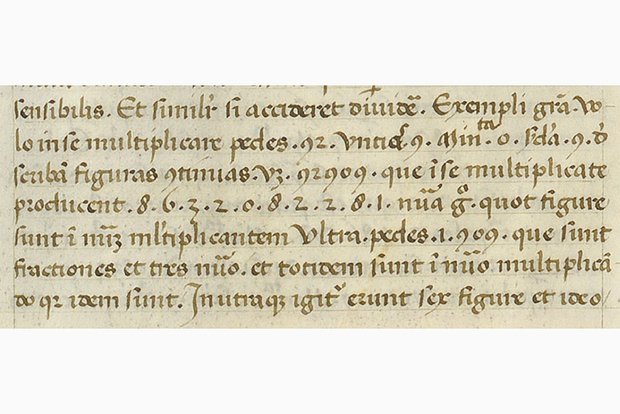 sensibilis. Et simil'r si accideret diuidẽ. Exempli grã. vo
lo in se multiplicare pedes .92. vntiꝭ 9. Minta .0. sda. 9. d̃
scribã figuras ꝯtinuas. vꝫ. 92909. que ĩ se multiplicate
producent .8.6.3.2.0.8.2.2.8.1. nũa gº. quot figure
sunt ĩ nũꝫ ml'tiplicantem vltra .pedes. 1. 909. que sunt
fractiones et tres nũo. et totidem sunt ĩ nũo multiplicã
do qr idem sunt. In utraqꝫ igitr erunt sex figure et ideo